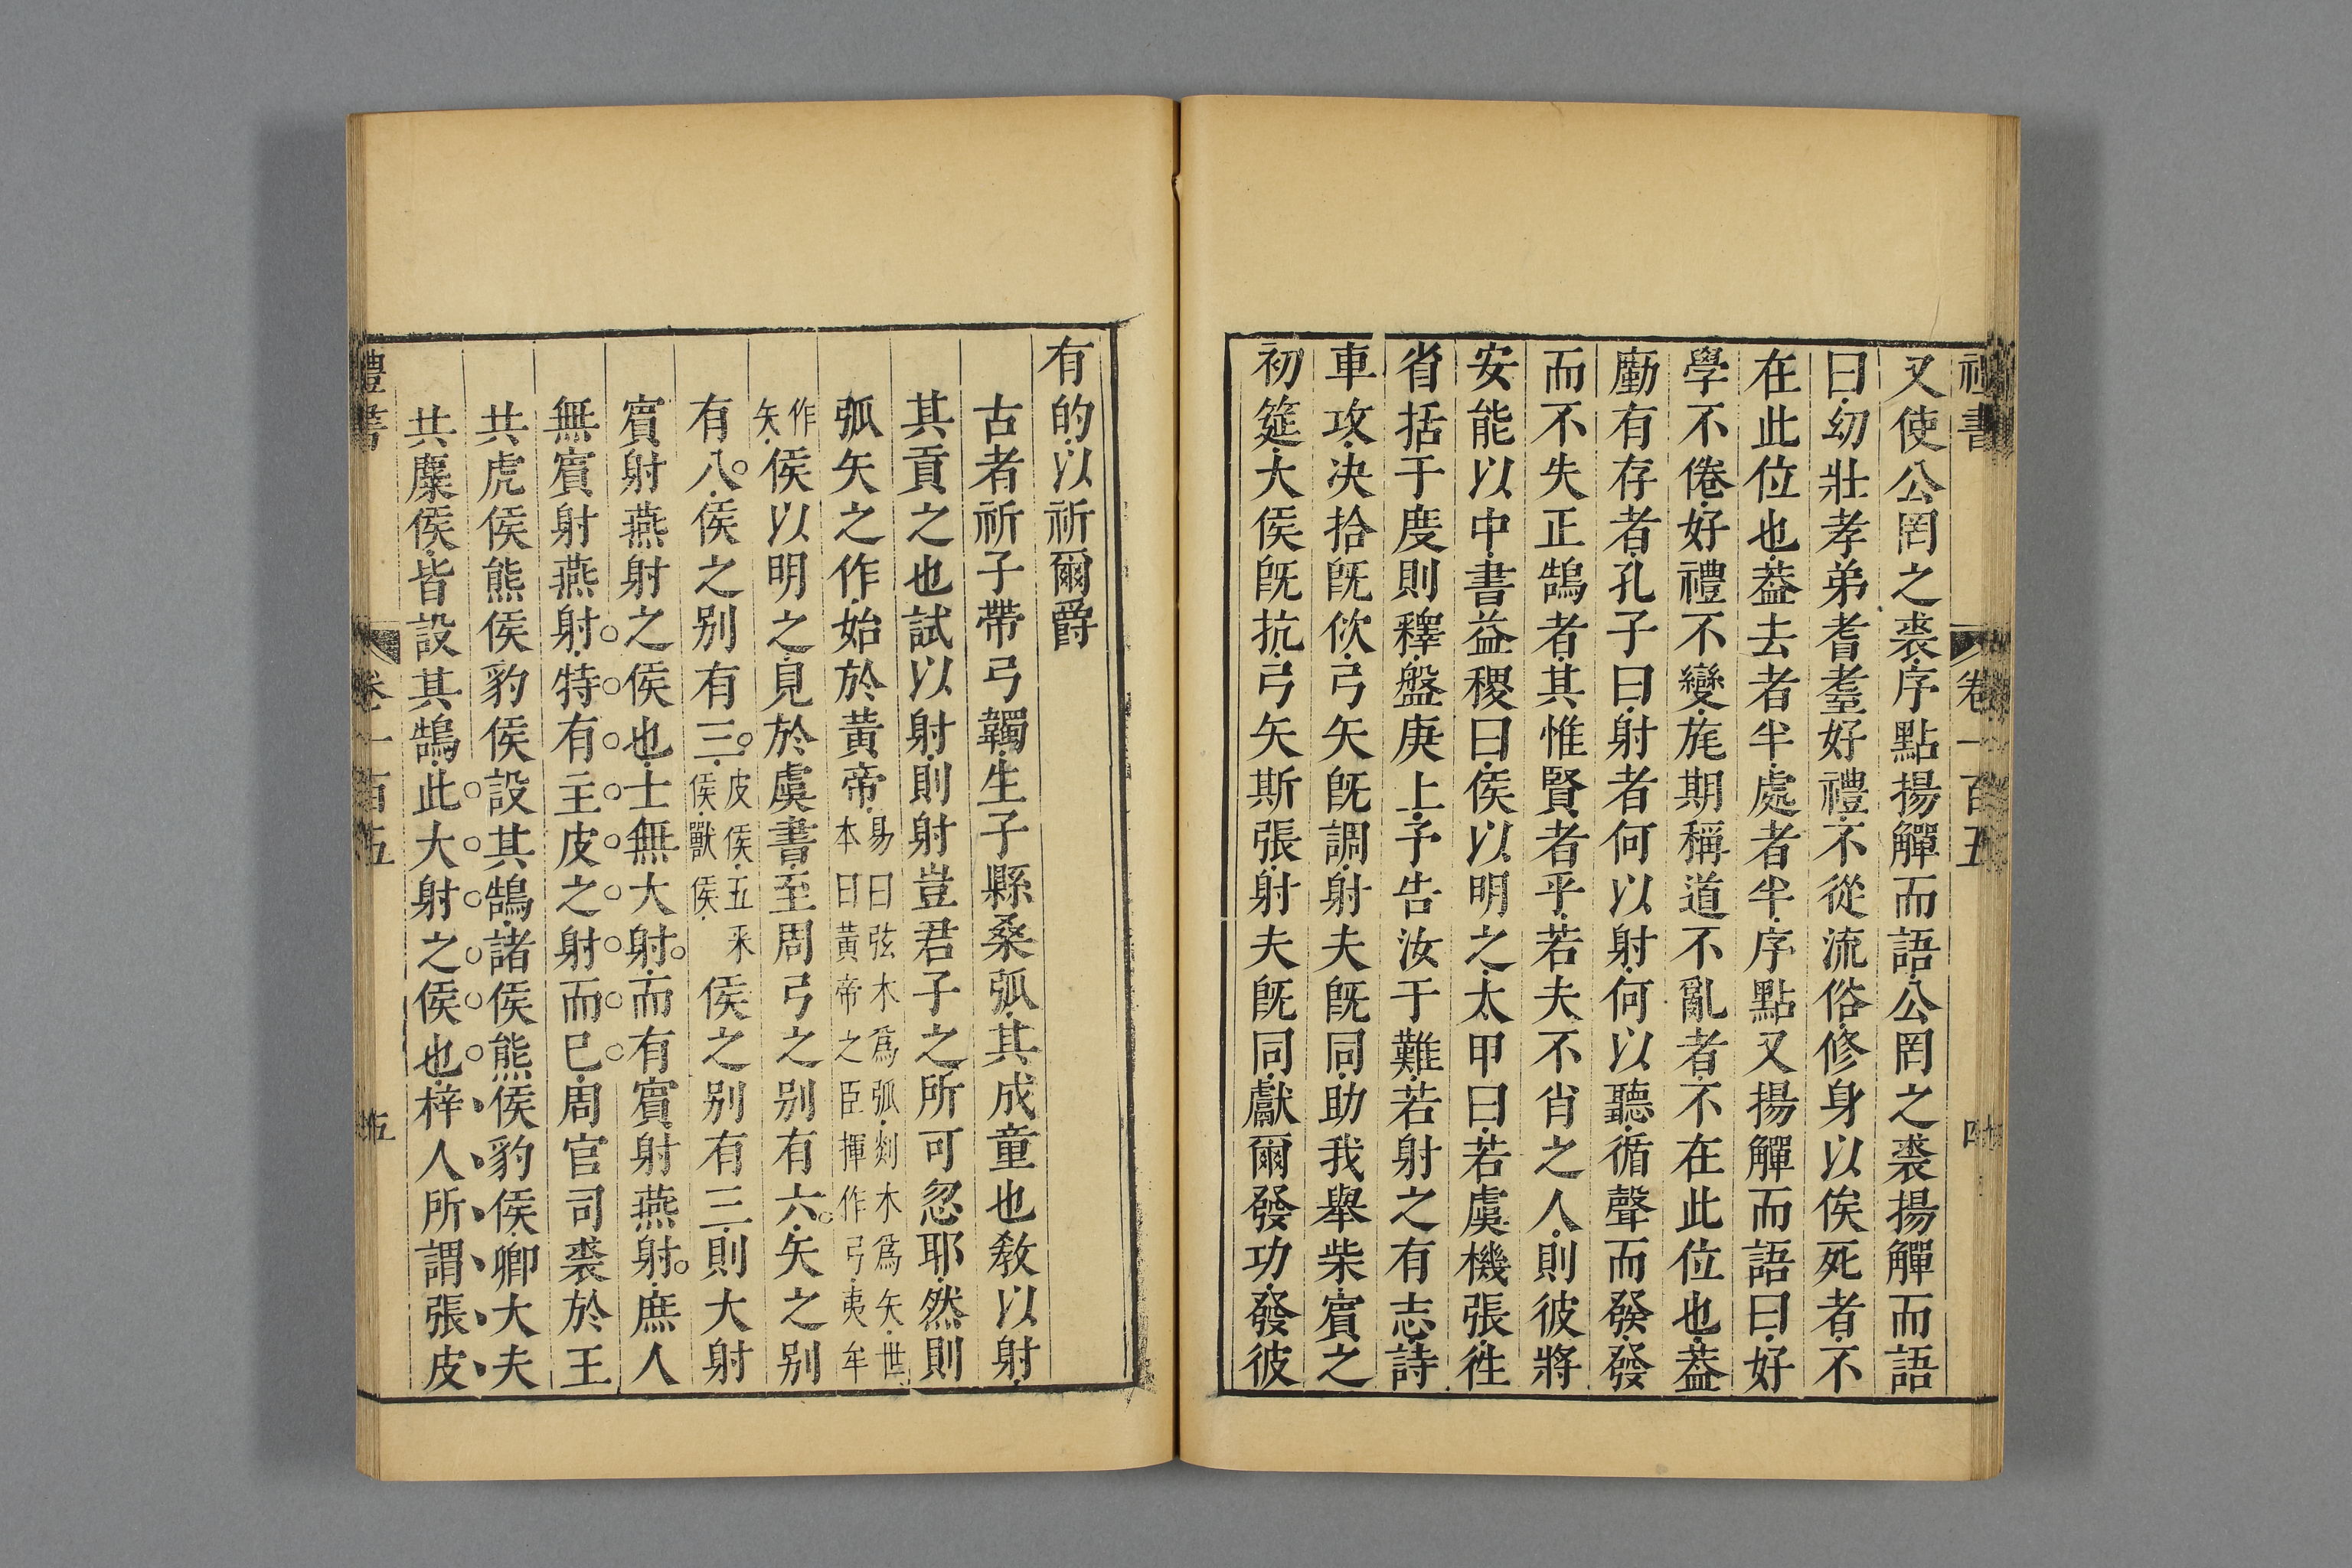 禮書 卷一百五 四
又使公罔之裘序點揚觶而語公罔之裘揚觶而語
曰幼壯孝弟耆耋好禮不從流俗修身以俟死者不
在此位也葢去者半處者半序點又揚觶而語曰好
學不倦好禮不變旄期稱道不亂者不在此位也葢
廟有存者孔子曰射者何以射何以聽循聲而發發
而不失正鵠者其惟賢者乎若夫不肖之人則彼將
安能以中書益稷曰侯以明之太甲曰若虞機張徃
省括于度則釋盤庚上予告汝于難若射之有志詩
車攻决拾旣佽弓矢旣調射夫旣同助我舉柴賔之
初筵大侯旣抗弓矢斯張射夫旣同獻爾發功發彼
有的以祈爾爵
古者祈子帶弓韣生子縣桑弧其成童也敎以射
其貢之也試以射則射豈君子之所可忽耶然則
弧矢之作始於黃帝易曰弦木爲弧剡木爲矢世
本曰黃帝之臣揮作弓夷牟
作
矢侯以明之見於虞書至周弓之别有六矢之别
有八侯之别有三皮侯五采
侯獸侯侯之别有三則大射
賔射燕射之侯也士無大射而有賔射燕射庶人
無賔射燕射特有主皮之射而已周官司裘於王
共虎侯熊侯豹侯設其鵠諸侯熊侯豹侯卿大夫
共麋侯皆設其鵠此大射之侯也梓人所謂張皮
禮書 卷一百五 五